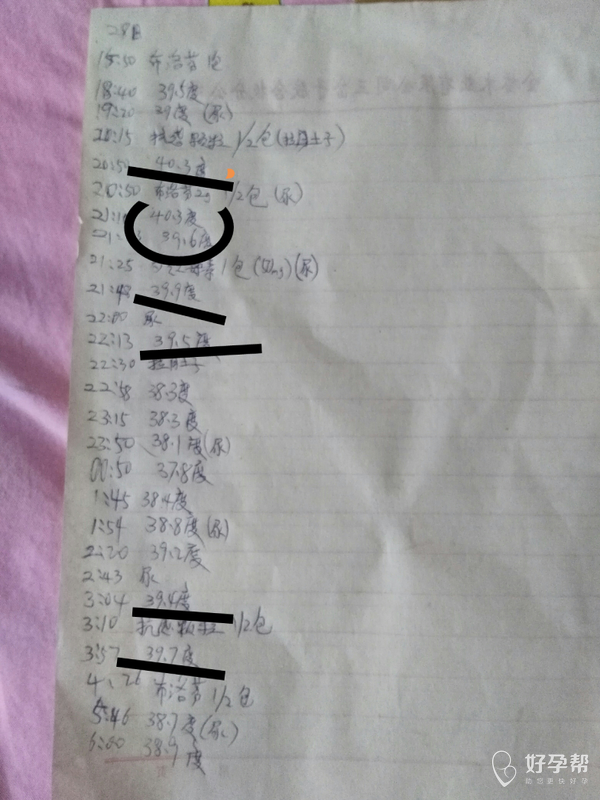 28日
15:50 布洛芬
18:40 39.5度
19:20 39度(尿)
20:15 抗感颗粒 1/2包(拉肚子)
20:50 40.3度
20:50 布洛芬 1/2包(尿)
40.3度
39.6度
21:25 1包 (尿)
21:48 39.9度
22:00 尿
22:13 39.5度
22:30 拉肚子
22:58 38.3度
23:15 38.3度
23:50 38.1度(尿)
00:50 37.8度
1:45 38.4度
1:54 38.8度(尿)
2:20 39.2度
2:43 尿
3:04 39.4度
3:10 抗感颗粒 1/2包
3:57 39.7度
4:26 布洛芬 1/2包
5:46 38.7度(尿)
6:00 38.9度
好孕帮
助您更快好孕